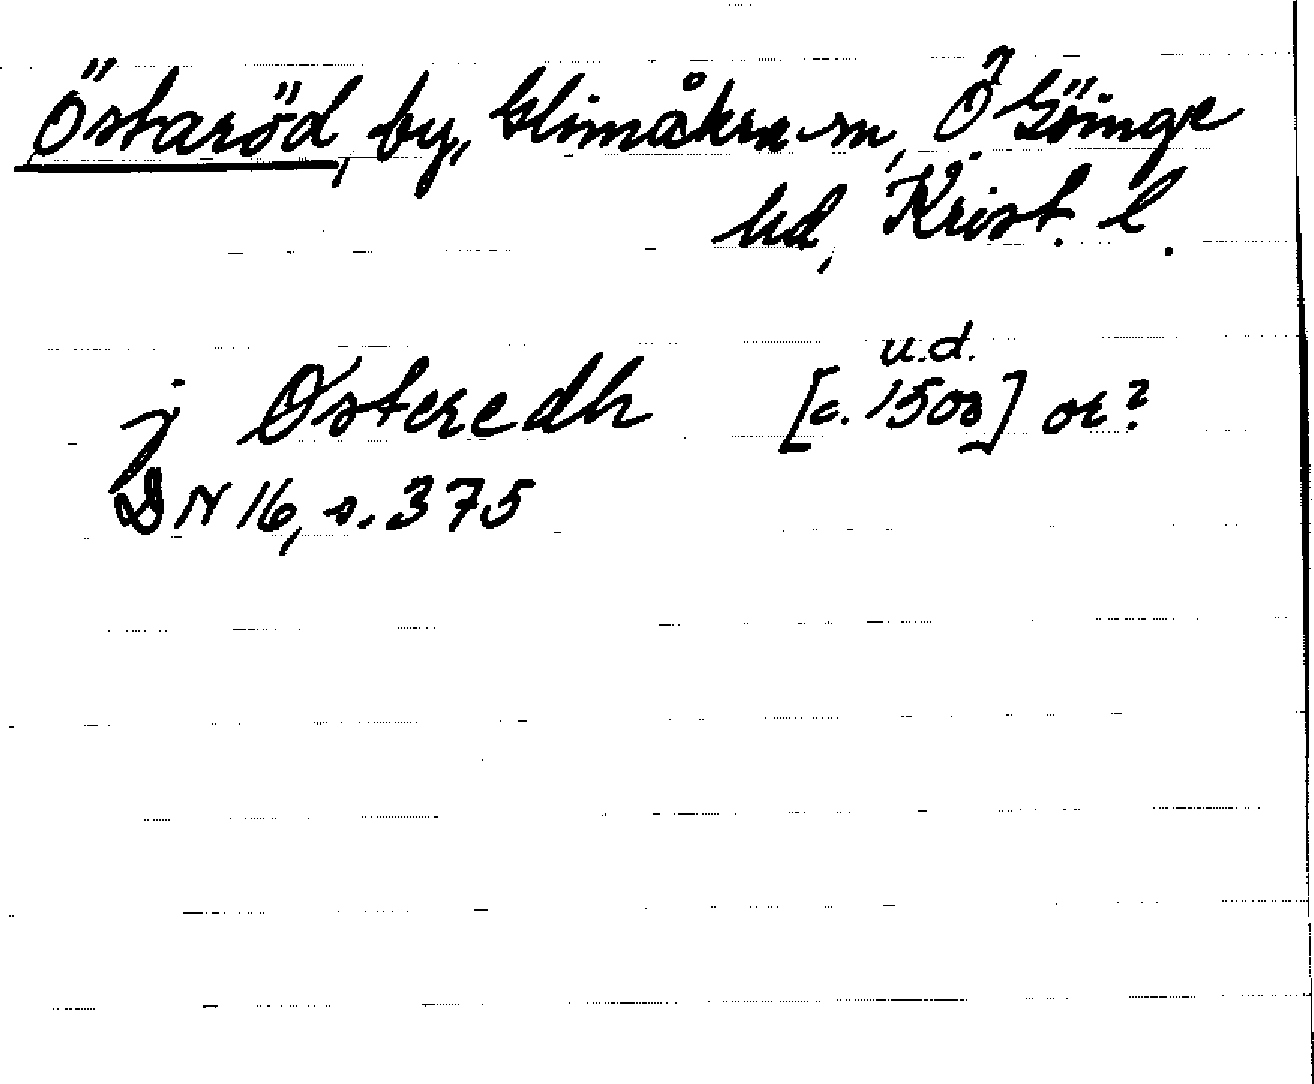 Östaröd, by, Glimåkra sn, Ö Göinge
hd, Krist. l.
u.d.
j Østeredh [c. 1500] or?
DN 16, s. 375